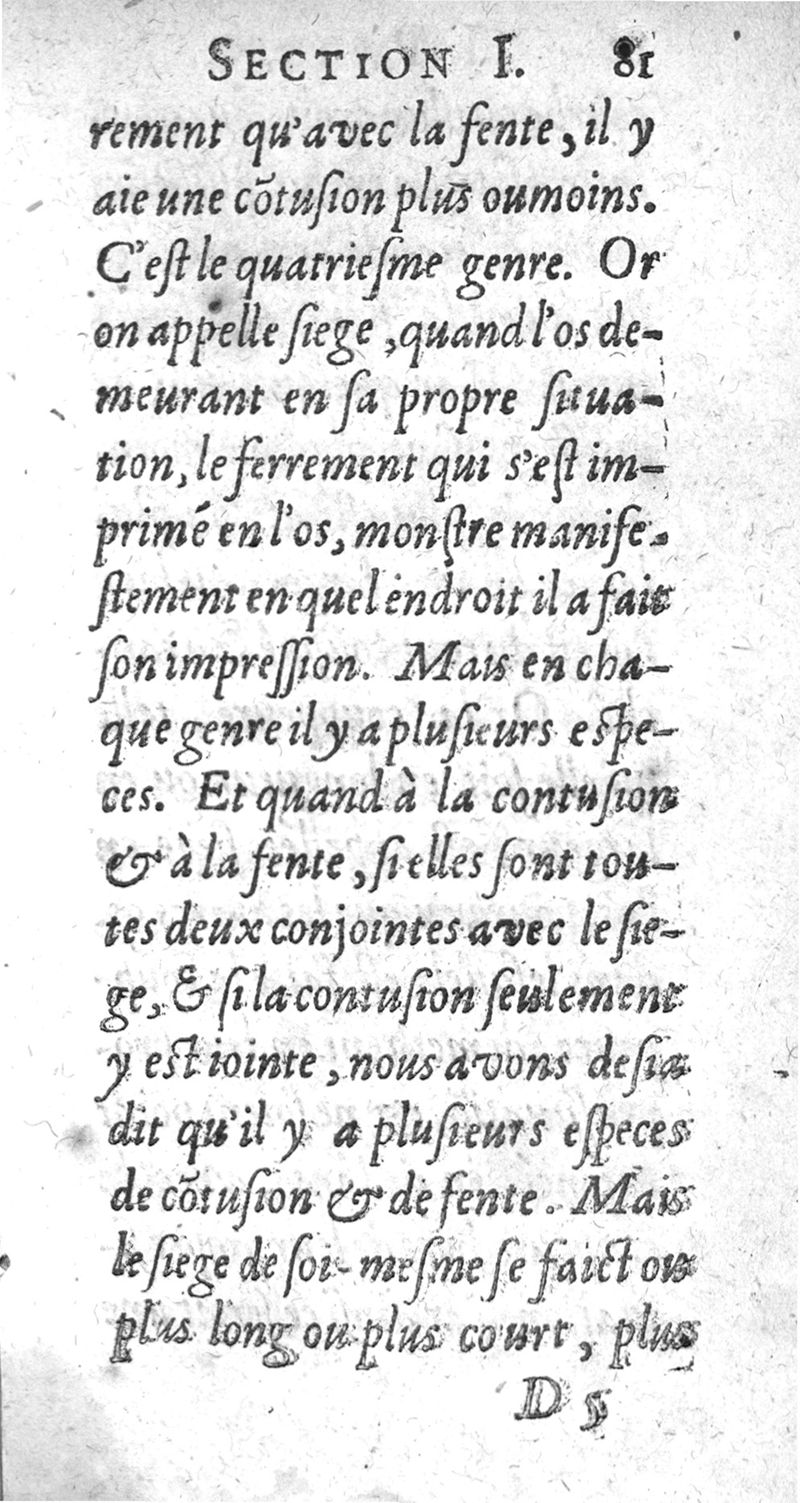 SECTION I. 81
rement qu'avec la fente, il y
aie une cõtusion plus oumoins.
C'eſt le quatrieſme genre. Or
on appelle ſiege, quand l'os de-
meurant en ſa propre ſitua-
tion, le ferrement qui s'eſt im-
primé en l'os, monſtre manife-
ſtement en quel endroit il a fait
ſon impreſſion. Mais en cha-
que genre il y a pluſieurs eſpe-
ces. Et quand à la contuſion
& à la fente, ſi elles ſont tou-
tes deux conjointes avec le ſie-
ge, & ſi la contuſion ſeulement
y eſt iointe, nous avons deſia
dit qu'il y a pluſieurs eſpeces
de cõtuſion & de fente. Mais
le ſiege de ſoi-meſme ſe faict ou
plus long ou plus court, plus
D 5